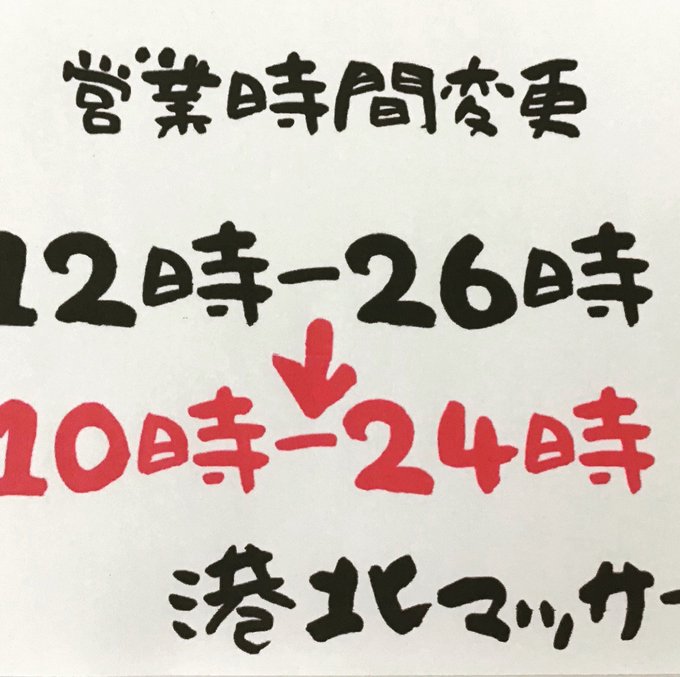 営業時間変更
12時-26時
↓
10時-24時
港北マッサー